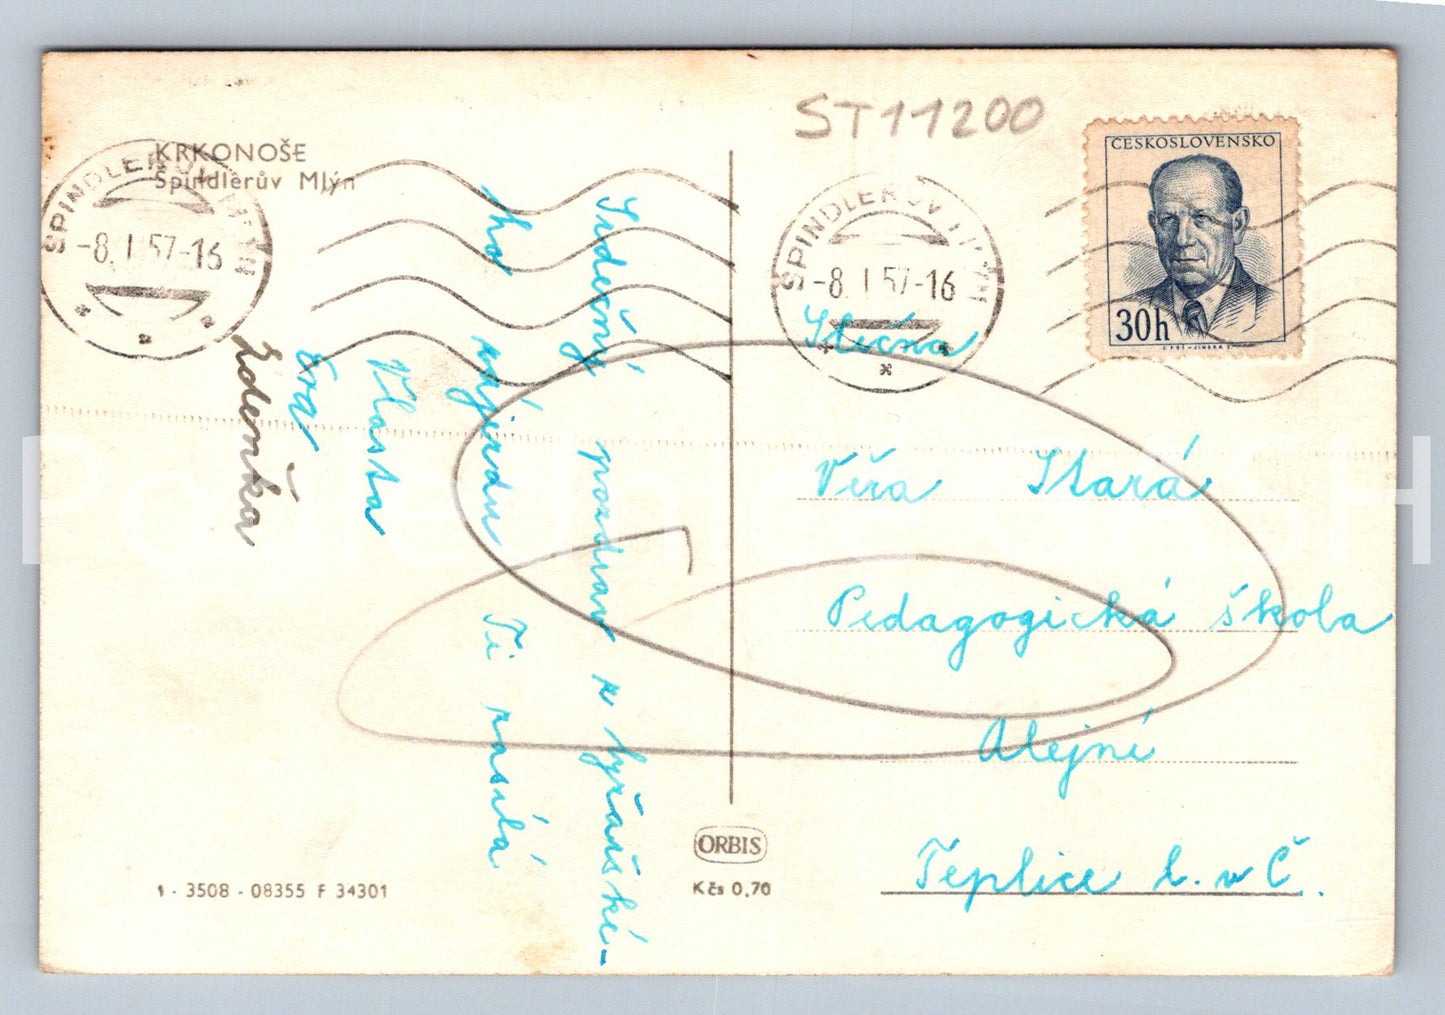 ST11200
KRKONOŠE
Špindlerův Mlýn
ŠPINDLERŮV MLÝN
-8.I.57-16
ŠPINDLERŮV MLÝN
-8.I.57-16
ČESKOSLOVENSKO
30h
Srdečný pozdrav z lyžařské-
ho zájezdu Ti zasílá
Vlasta
Eva
Zdeňka
Slečna
Věra Stará
Pedagogická škola
Alejní
Teplice l. v Č.
ORBIS
Kčs 0,70
1 - 3508 - 08355 F 34301